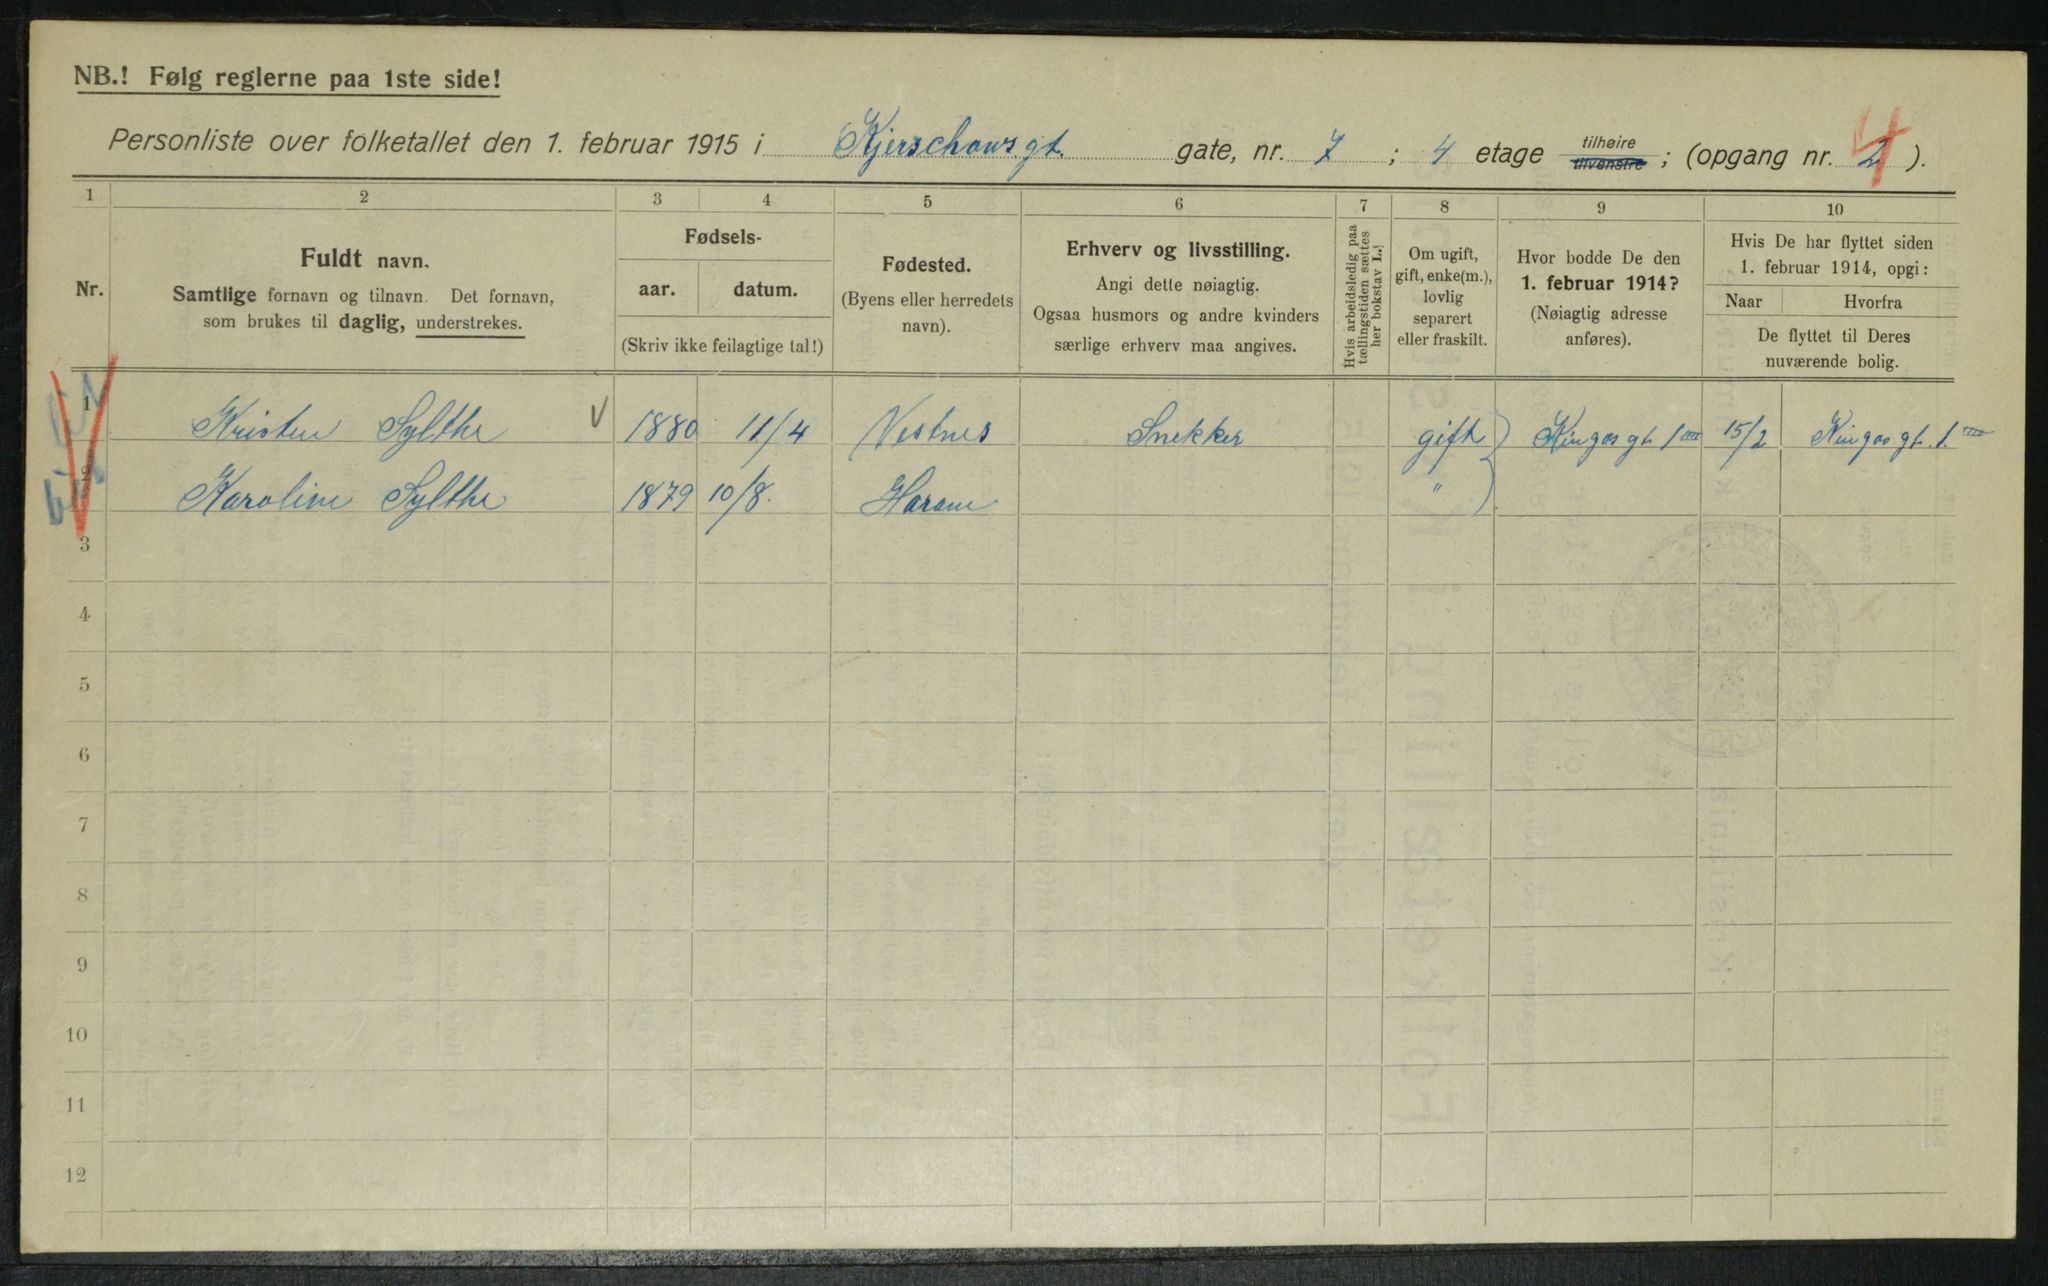 NB.! Følg reglerne paa 1ste side!
Personliste over folketallet den 1. februar 1915 i Kjerschowsgt. gate, nr. 7 ; 4 etage tilhøire tilvenstre ; (opgang nr. 2 4 ).
1 2 3 4 5 6 7 8 9 10
Nr.
Fuldt navn.
Samtlige fornavn og tilnavn. Det fornavn,
som brukes til daglig, understrekes.
Fødsels-
aar. datum.
(Skriv ikke feilagtige tal!)
Fødested.
(Byens eller herredets
navn).
Erhverv og livsstilling.
Angi dette nøiagtig.
Ogsaa husmors og andre kvinders
særlige erhverv maa angives.
Hvis arbeidsledig paa
tællingstiden sættes
her bokstav L.!
Om ugift,
gift, enke(m.),
lovlig
separert
eller fraskilt.
Hvor bodde De den
1. februar 1914?
(Nøiagtig adresse
anføres).
Hvis De har flyttet siden
1. februar 1914, opgi:
Naar Hvorfra
De flyttet til Deres
nuværende bolig.
1 Kristen Sylthe 1880 11/4 Vestnes Snekker gift Kingosgt 1 III 15/2 Kingosgt. 1. III
2 Karoline Sylthe 1879 10/8. Haram "
3
4
5
6
7
8
9
10
11
12